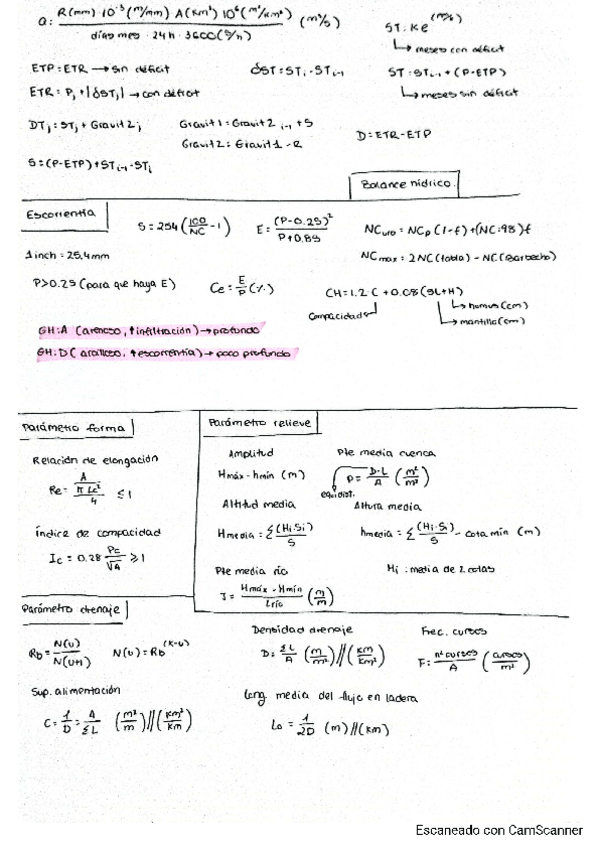 Q: R(mm) 10⁻³ (m/mm) A(km²) 10⁶ (m²/km²) / días mes · 24h · 3600 (s/h) (m³/s)
ST: Ke
↳ meses con déficit
ETP = ETR → sin déficit
δST = STi - STi-1
ST = STi-1 + (P-ETP)
↳ meses sin déficit
ETR = Pi + |δSTi| → con déficit
DTi = STi + Gravit 2i
Gravit 1 = Gravit 2 i-1 + S
Gravit 2 = Gravit 1 - R
D = ETR - ETP
S = (P-ETP) + STi-1 - STi
Balance hídrico
Escorrentía
S = 254 (100/NC - 1)
E = (P-0.2S)² / P+0.8S
NCuro = NCp (1-f) + (NC:98) f
1 inch = 25,4mm
NCmax = 2NC (tabla) - NC (Barbecho)
P > 0.2S (para que haya E)
Ce = E/P (%)
CH = 1.2 · C + 0.08 (SL+H)
Compacidad
↳ humus (cm)
↳ mantillo (cm)
GH: A (arenoso, ↑infiltración) → profundo
GH: D (arcilloso, ↑escorrentía) → poco profundo
Parámetro forma
Relación de elongación
Re = A / (π Lc² / 4) ≤ 1
Índice de compacidad
Ic = 0.28 Pc/√A ≥ 1
Parámetro relieve
Amplitud
Hmáx - hmin (m)
Pte media cuenca
P = D·L/A (m/m²)
equidist.
Altitud media
Hmedia = Σ (Hi·Si)/S
Altura media
hmedia = Σ (Hi·Si)/S - cota min (m)
Pte media río
J = Hmáx - Hmín / Lrío (m/m)
Hi: media de 2 cotas
Parámetro drenaje
Rb = N(u)/N(u+1)
N(u) = Rb^(K-u)
Densidad drenaje
D = ΣL/A (m/m²) // (km/km²)
Frec. cursos
F = nº cursos/A (cursos/m²)
Sup. alimentación
C = 1/D = A/ΣL (m²/m) // (km²/km)
Long. media del flujo en ladera
Lo = 1/2D (m) // (km)
Escaneado con CamScanner